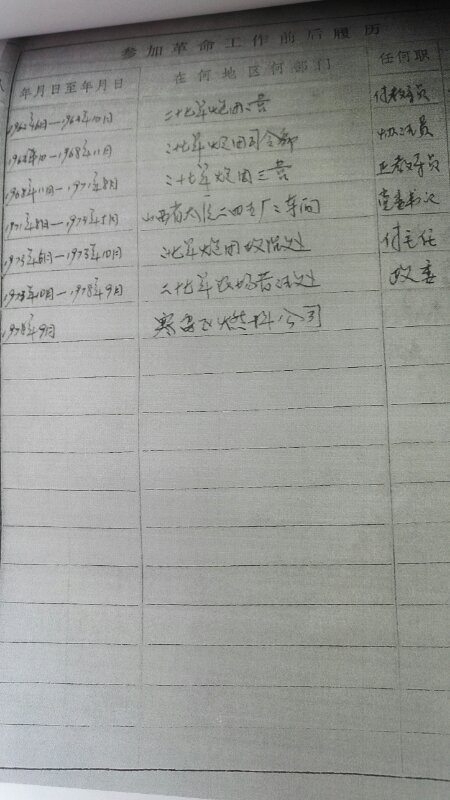 参加革命工作前后履历
年月日至年月日 在何地区何部门 任何职
二十七军炮团一营 付教导员
1964年10月—1968年11月 二十七军炮团司令部 协理员
1968年11月—1971年8月 二十七军炮团三营 正教导员
1971年8月— 山西省太原二四七厂二车间 党委书记
1973年5月—1973年10月 二十七军炮团政治处 付主任
1973年10月—1978年9月 二十七军农场 政委
1978年9月 燃料公司